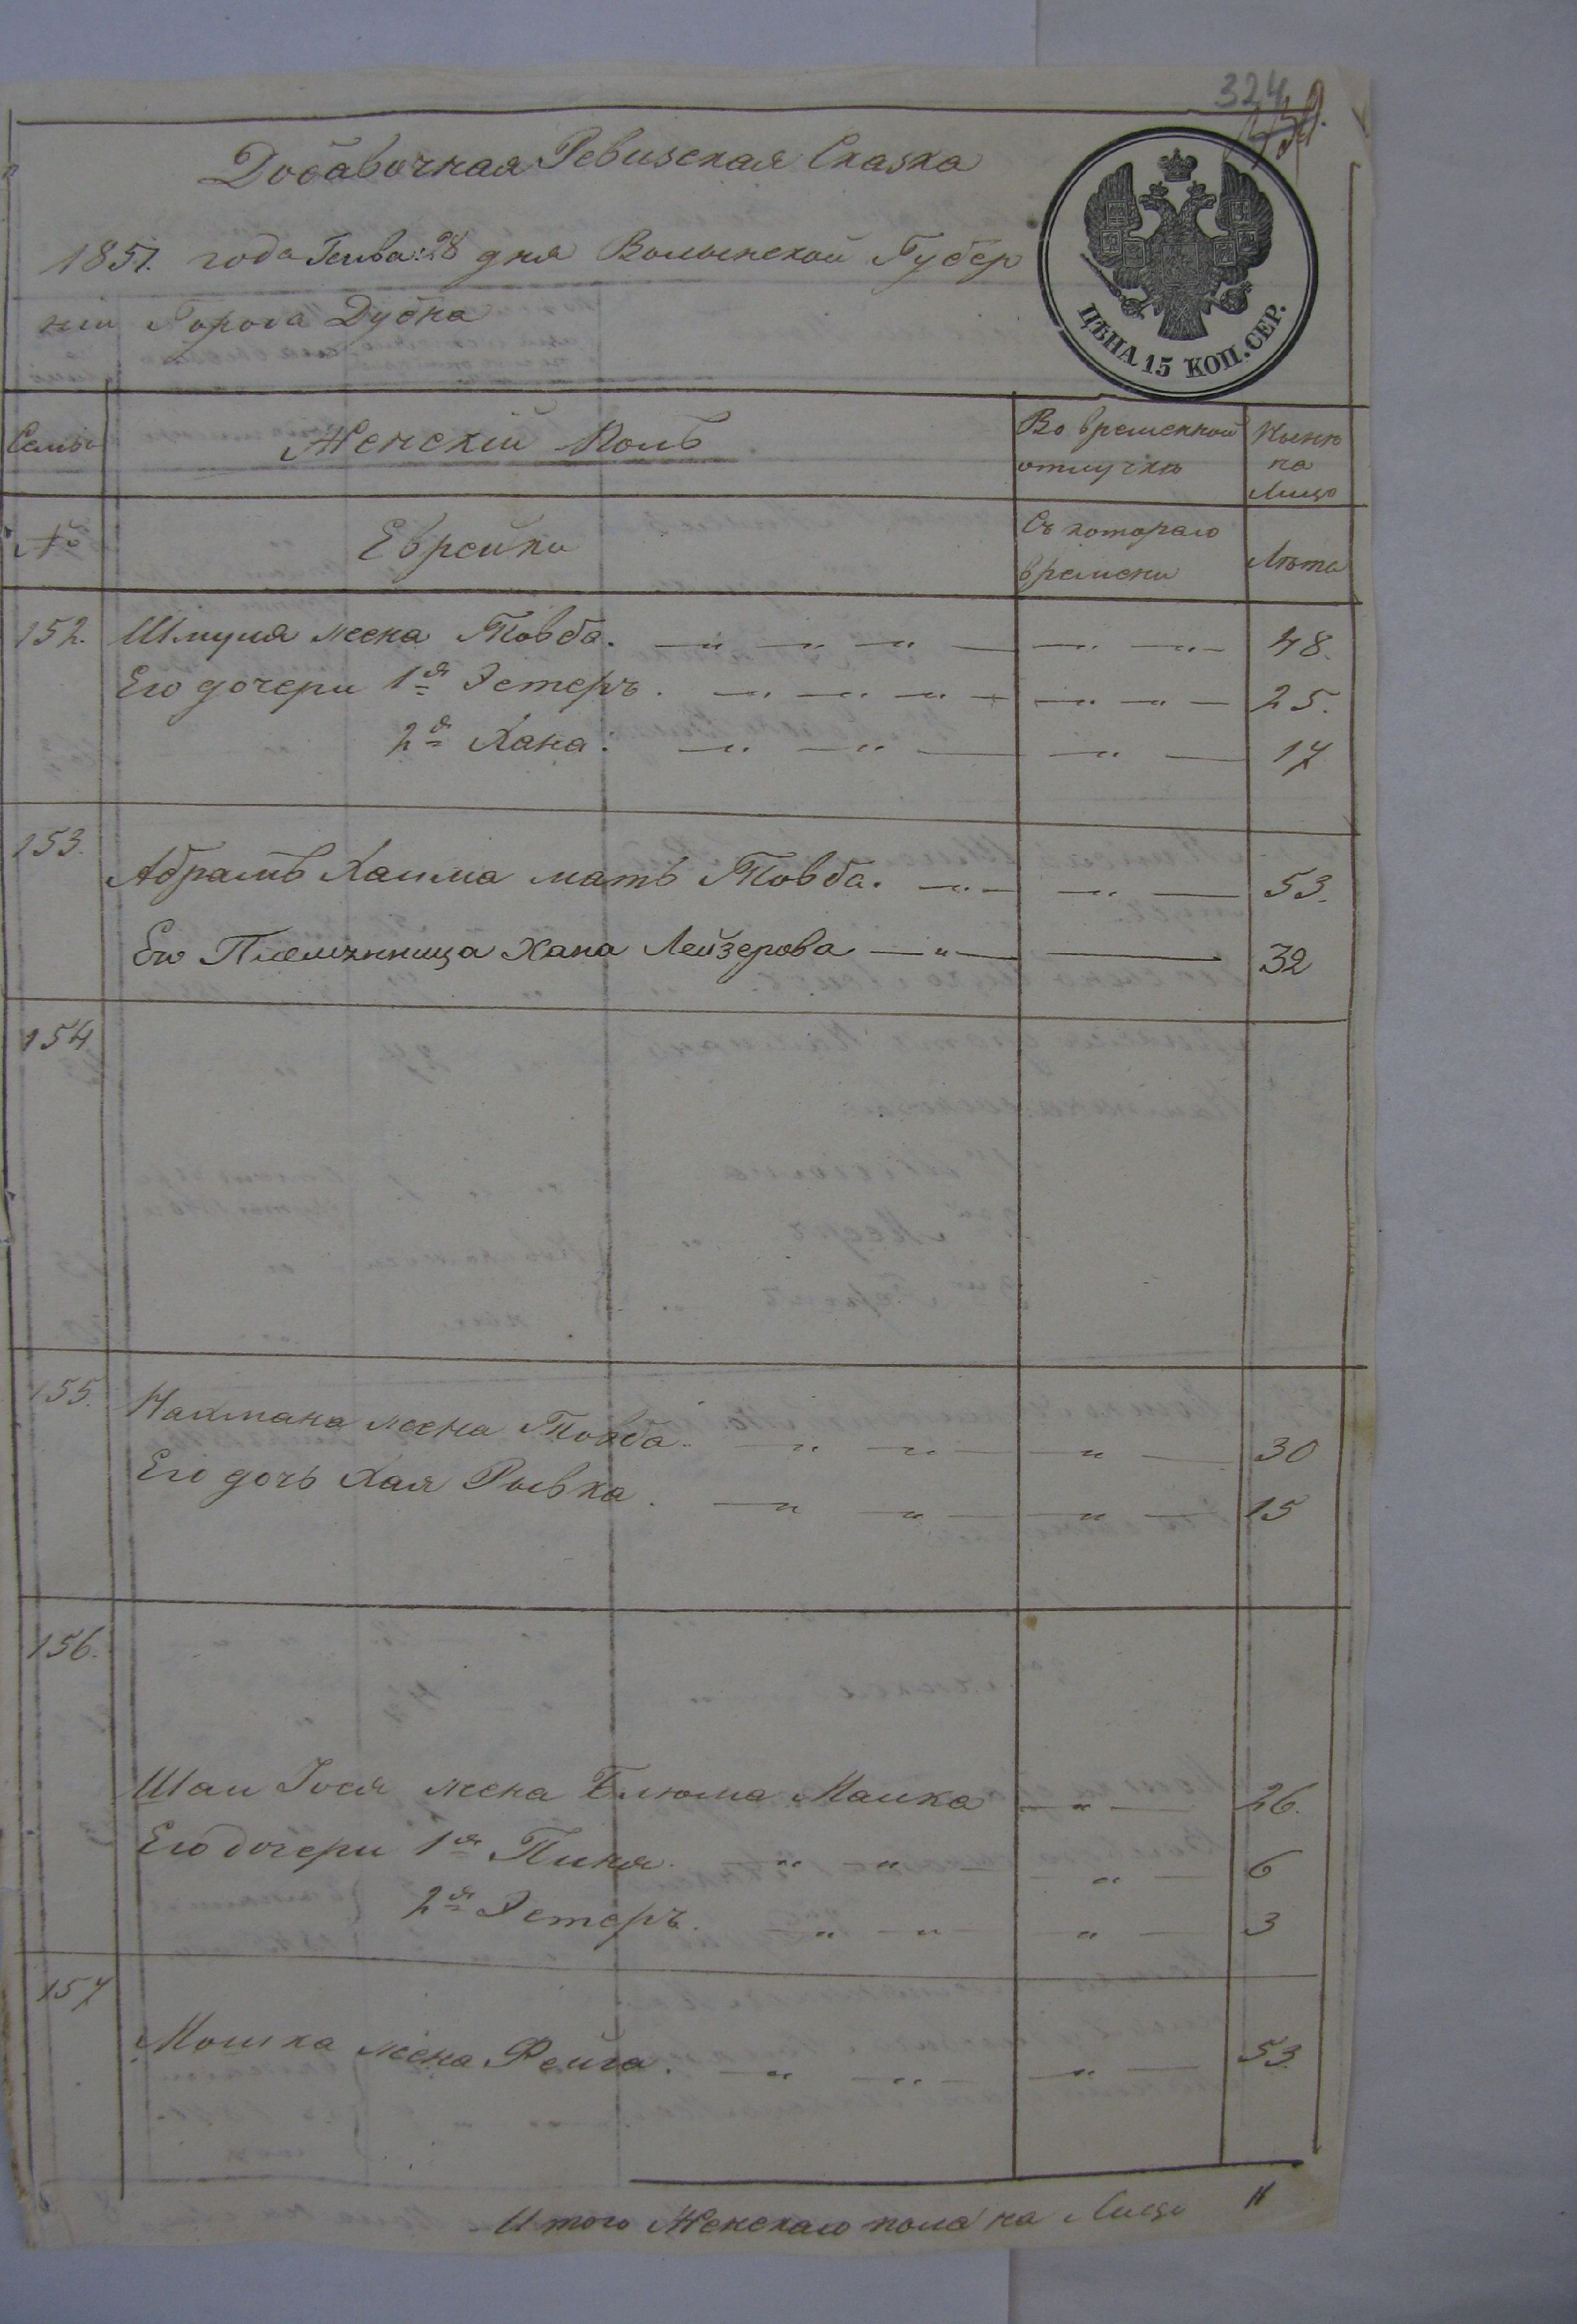 324
Добавочная Ревизская Сказка
1851 года Генва: 28 дня Волынской Губер
ніи Города Дубна
ЦѢНА 15 КОП. СЕР.
Семьи
Женскій Полъ
Во временной отлучкѣ
Нынѣ на Лицо
№
Еврейки
Съ котораго времени
Лѣта
152. Шмуля жена Товба. 48.
Его дочери 1я Эстеръ. 25.
2я Хана. 17
153. Абрамъ Хаима мать Товба. 53.
Его Племянница Хана Лейзерова 32
154
155. Нахмана жена Товба. 30
Его дочь Хая Рывка. 15
156.
Шаи Іося жена Блюма Малка 26.
Его дочери 1я Пиня. 6
2я Эстеръ. 3
157
Мошка жена Фейга. 53.
Итого Женскаго пола на Лицо 11